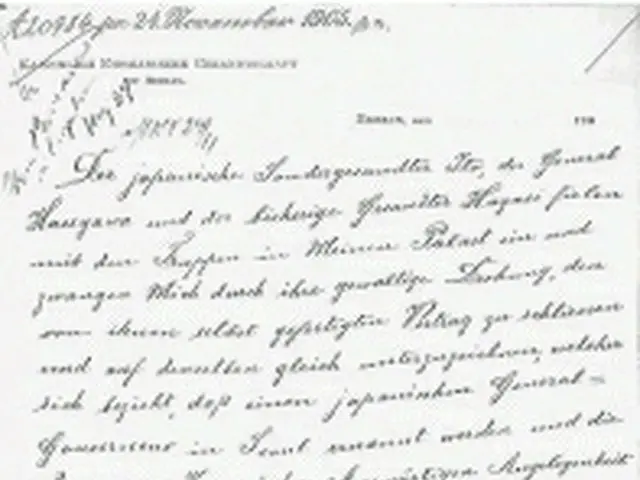 A20986 pr 24. November 1905. p.m.
Kaiserlich Koreanische Gesandtschaft
in Berlin.
Berlin, den 190
Der japanische Sondergesandter Ito, der General
Hasegawa und der bisherige Gesandter Hayasi fielen
mit den Truppen in Meinen Palast ein und
zwangen Mich durch ihre gewaltige Drohung, den
von ihnen selbst gefertigten Vertrag zu schliessen
und auf denselben gleich unterzuzeichnen, welcher
sich bezieht, daß einen japanischen General-
Gouverneur in Seoul ernannt werden und die
Auswärtigen Angelegenheit